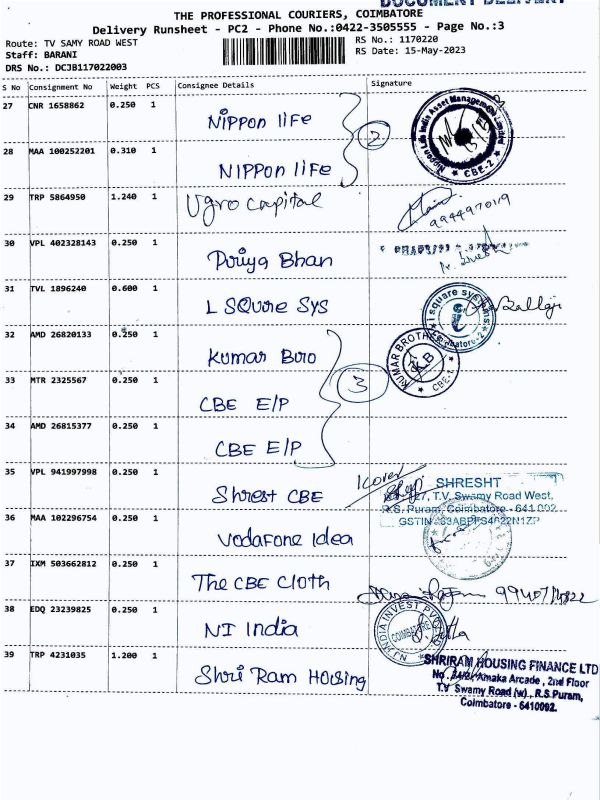 DOCUMENT DELIVERY
THE PROFESSIONAL COURIERS, COIMBATORE
Delivery Runsheet - PC2 - Phone No.:0422-3505555 - Page No.:3
Route: TV SAMY ROAD WEST
RS No.: 1170220
Staff: BARANI
RS Date: 15-May-2023
DRS No.: DC3B117022003
S No Consignment No Weight PCS Consignee Details Signature
27 CNR 1658862 0.250 1 Nippon life
Nippon Life India Asset Management Limited
CBE-2
2
28 MAA 100252201 0.310 1 Nippon life
29 TRP 5864950 1.240 1 Ugro Capital
30 VPL 402328143 0.250 1 Priya Bhan
31 TVL 1896240 0.600 1 L SQuire Sys
i square systems
Coimbatore-2
Balaji
32 AMD 26820133 0.250 1 Kumar Bro
KUMAR BROTHERS
KB
CBE-1
33 MTR 2325567 0.250 1 CBE E/P
3
34 AMD 26815377 0.250 1 CBE E/P
35 VPL 941997998 0.250 1 Shrest CBE
1 Cover
SHRESHT
27, T.V. Swamy Road West,
R.S. Puram, Coimbatore - 641 002
GSTIN
36 MAA 102296754 0.250 1 Vodafone Idea
37 IXM 503662812 0.250 1 The CBE Cloth
38 EDQ 23239825 0.250 1 NI India
NJ INDIA INVEST PVT LTD
COIMBATORE
39 TRP 4231035 1.200 1 Shri Ram Housing
SHRIRAM HOUSING FINANCE LTD
Amaka Arcade, 2nd Floor
T.V Swamy Road (w), R.S Puram,
Coimbatore - 6410092.